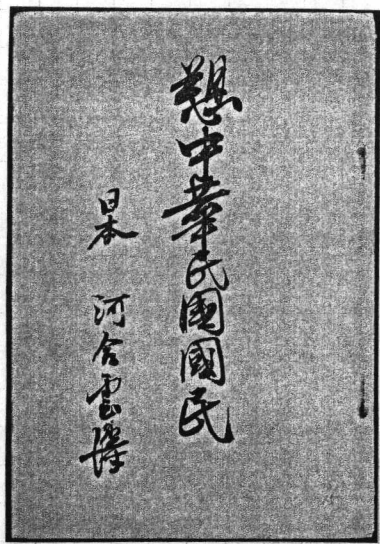 懇中華民國國民
日本 河合雲